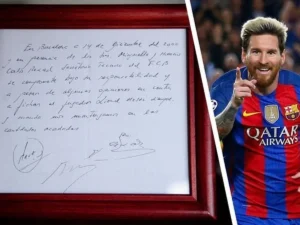 En Barcelona a 14 de Diciembre del
y en presencia de los Minguella y
Carles Secretario Técnico del F.C.B
se compromete bajo su responsabilidad y
a pesar de algunas opiniones en contra
a fichar al jugador Lionel
y cuando nos mantengamos en las
cantidades acordadas
QATAR
AIRWAYS